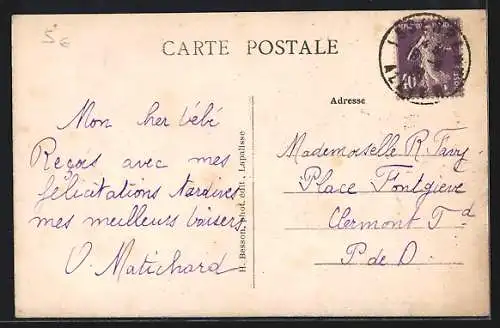 5€
CARTE POSTALE
40c
Adresse
Mon her bébé
Reçois avec mes
félicitations tardives
mes meilleurs baisers
O. Matichard
H. Besson, phot. édit. Lapalisse
Mademoiselle R. Favy
Place Fontgiève
Clermont Fd
P de D.